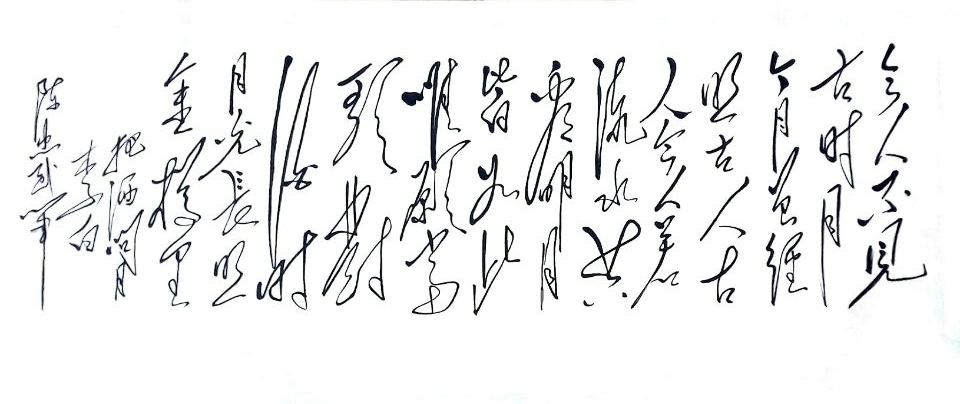 今人不見
古时月
今月曾經
照古人古
人今人若
流水共
看明月
皆如此
唯願当
歌對
酒时
月光長照
金樽里
把酒问月
李白
陈忠